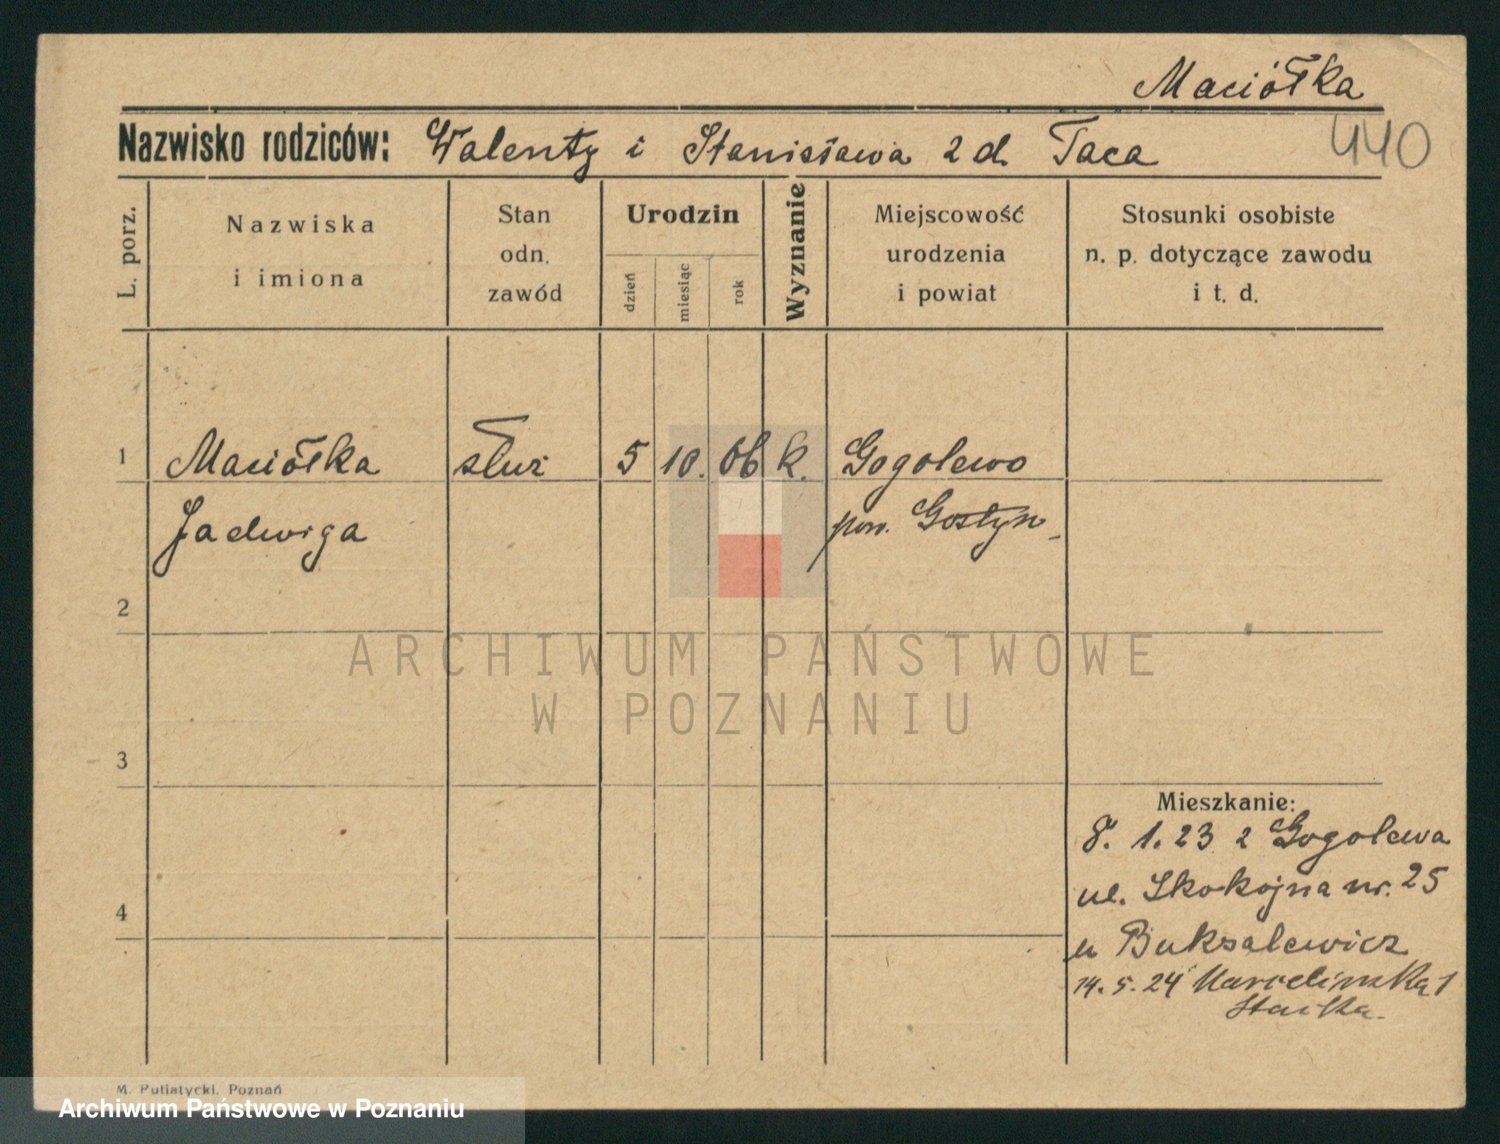 Maciółka
Nazwisko rodziców: Walenty i Stanisława z d. Taca
440
L. porz.
Nazwiska
i imiona
Stan
odn.
zawód
Urodzin
dzień
miesiąc
rok
Wyznanie
Miejscowość
urodzenia
i powiat
Stosunki osobiste
n. p. dotyczące zawodu
i t. d.
1 Maciółka służ 5 10. 06 k. Gogolewo
Jadwiga pow. Gostyn
2
ARCHIWUM PAŃSTWOWE
W POZNANIU
3
Mieszkanie:
8. 1. 23 z Gogolewa
ul. Skokojna nr. 25
4
u Buksalewicz
14. 5. 24 Marcelińska 1
M. Putiatycki, Poznań
Archiwum Państwowe w Poznaniu